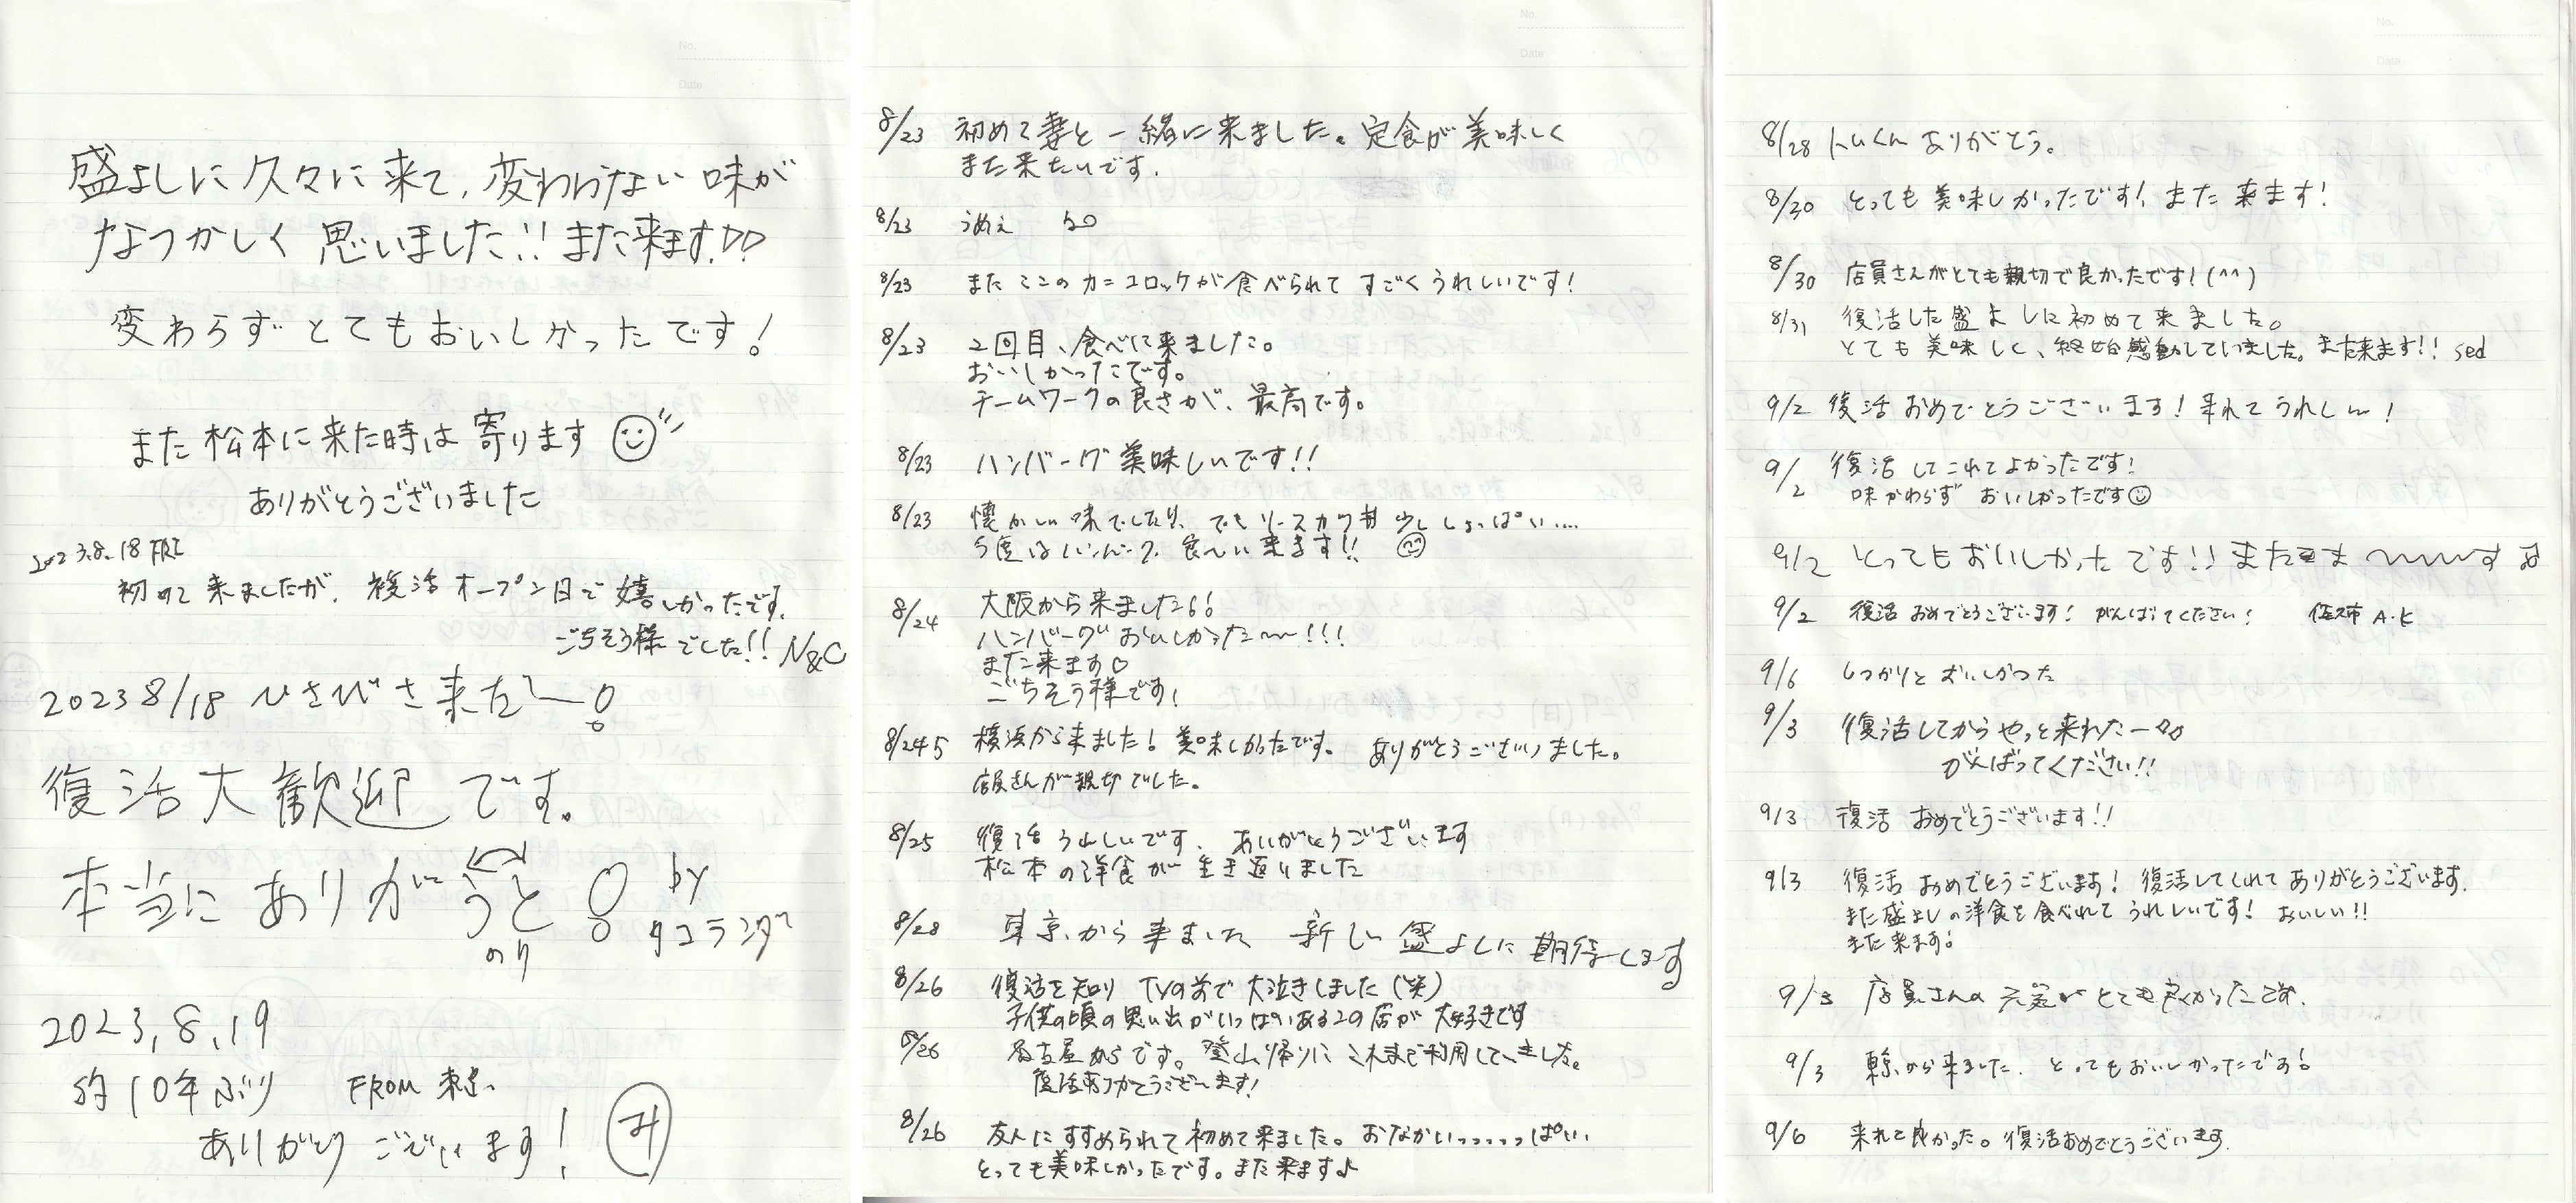 盛よしに久々に来て、変わらない味が
なつかしく思いました!!また来ます!♡♡
変わらずとてもおいしかったです!
また松本に来た時は寄ります
ありがとうございました
2023.8.18 FRI
初めて来ましたが、複活オープン日で嬉しかったです。
ごちそう様でした!! N&C
2023 8/18 ひさびさ来た〜!
復活大歓迎です。
本当にありがうと! by
のり タコランダー
2023,8,19
約10年ぶり FROM 東京
ありがとうございます!
No.
Date
8/23 初めて妻と一緒に来ました。定食が美味しく
また来たいです.
8/23 うめぇ
8/23 またここのカニコロッケが食べられてすごくうれしいです!
8/23 2回目、食べに来ました。
おいしかったです。
チームワークの良さが、最高です。
8/23 ハンバーグ美味しいです!!
8/23 懐かしい味でした!! でもソースカツ丼少ししょっぱい....
今度はハンバーグ食べに来ます!!
8/24 大阪から来ました!
ハンバーグおいしかった〜!!!
また来ます♡
ごちそう様です!
8/245 横浜から来ました! 美味しかったです。 ありがとうございました。
店員さんが親切でした。
8/25 復活うれしいです. ありがとうございます
松本の洋食が生き返りました
8/28 東京から来ました 新しい盛よしに期待します
8/26 復活を知り TVの前で大泣きしました(笑)
子供の頃の思い出がいっぱいあるこの店が大好きです
8/26 名古屋からです。登山帰りにこれまで利用していました。
復活ありがとうございます!
8/26 友人にすすめられて初めて来ました。おなかいっっっっっぱい、
とっても美味しかったです。また来ます♪
No.
Date
8/28 トムくんありがとう。
8/30 とっても美味しかったです! また来ます!
8/30 店員さんがとても親切で良かったです!(^^)
8/31 復活した盛よしに初めて来ました。
とても美味しく、終始感動していました。また来ます!! sed
9/2 復活おめでとうございます! 来れてうれし〜!
9/2 復活してこれてよかったです!
味かわらずおいしかったです
9/2 とってもおいしかったです!! また来ま〜〜〜す
9/2 復活おめでとうございます! がんばってください! 佐久市 A.K
9/6 しっかりとおいしかった
9/3 復活してからやっと来れたー
がんばってください!!
9/3 復活 おめでとうございます!!
9/3 復活おめでとうございます! 復活してくれてありがとうございます.
また盛よしの洋食を食べれてうれしいです! おいしい!!
また来ます!
9/3 店員さんの元気がとても良くかったです.
9/3 東京から来ました. とってもおいしかったです!
9/6 来れて良かった。復活おめでとうございます.
No.
Date